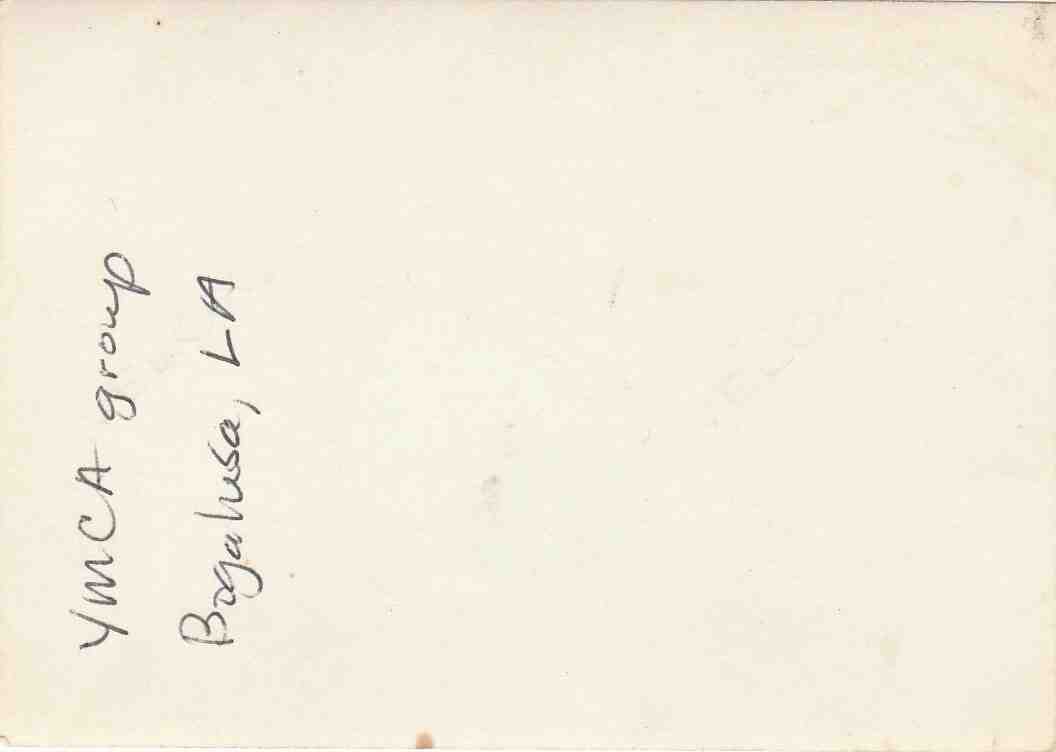 YMCA group
Bogalusa, LA